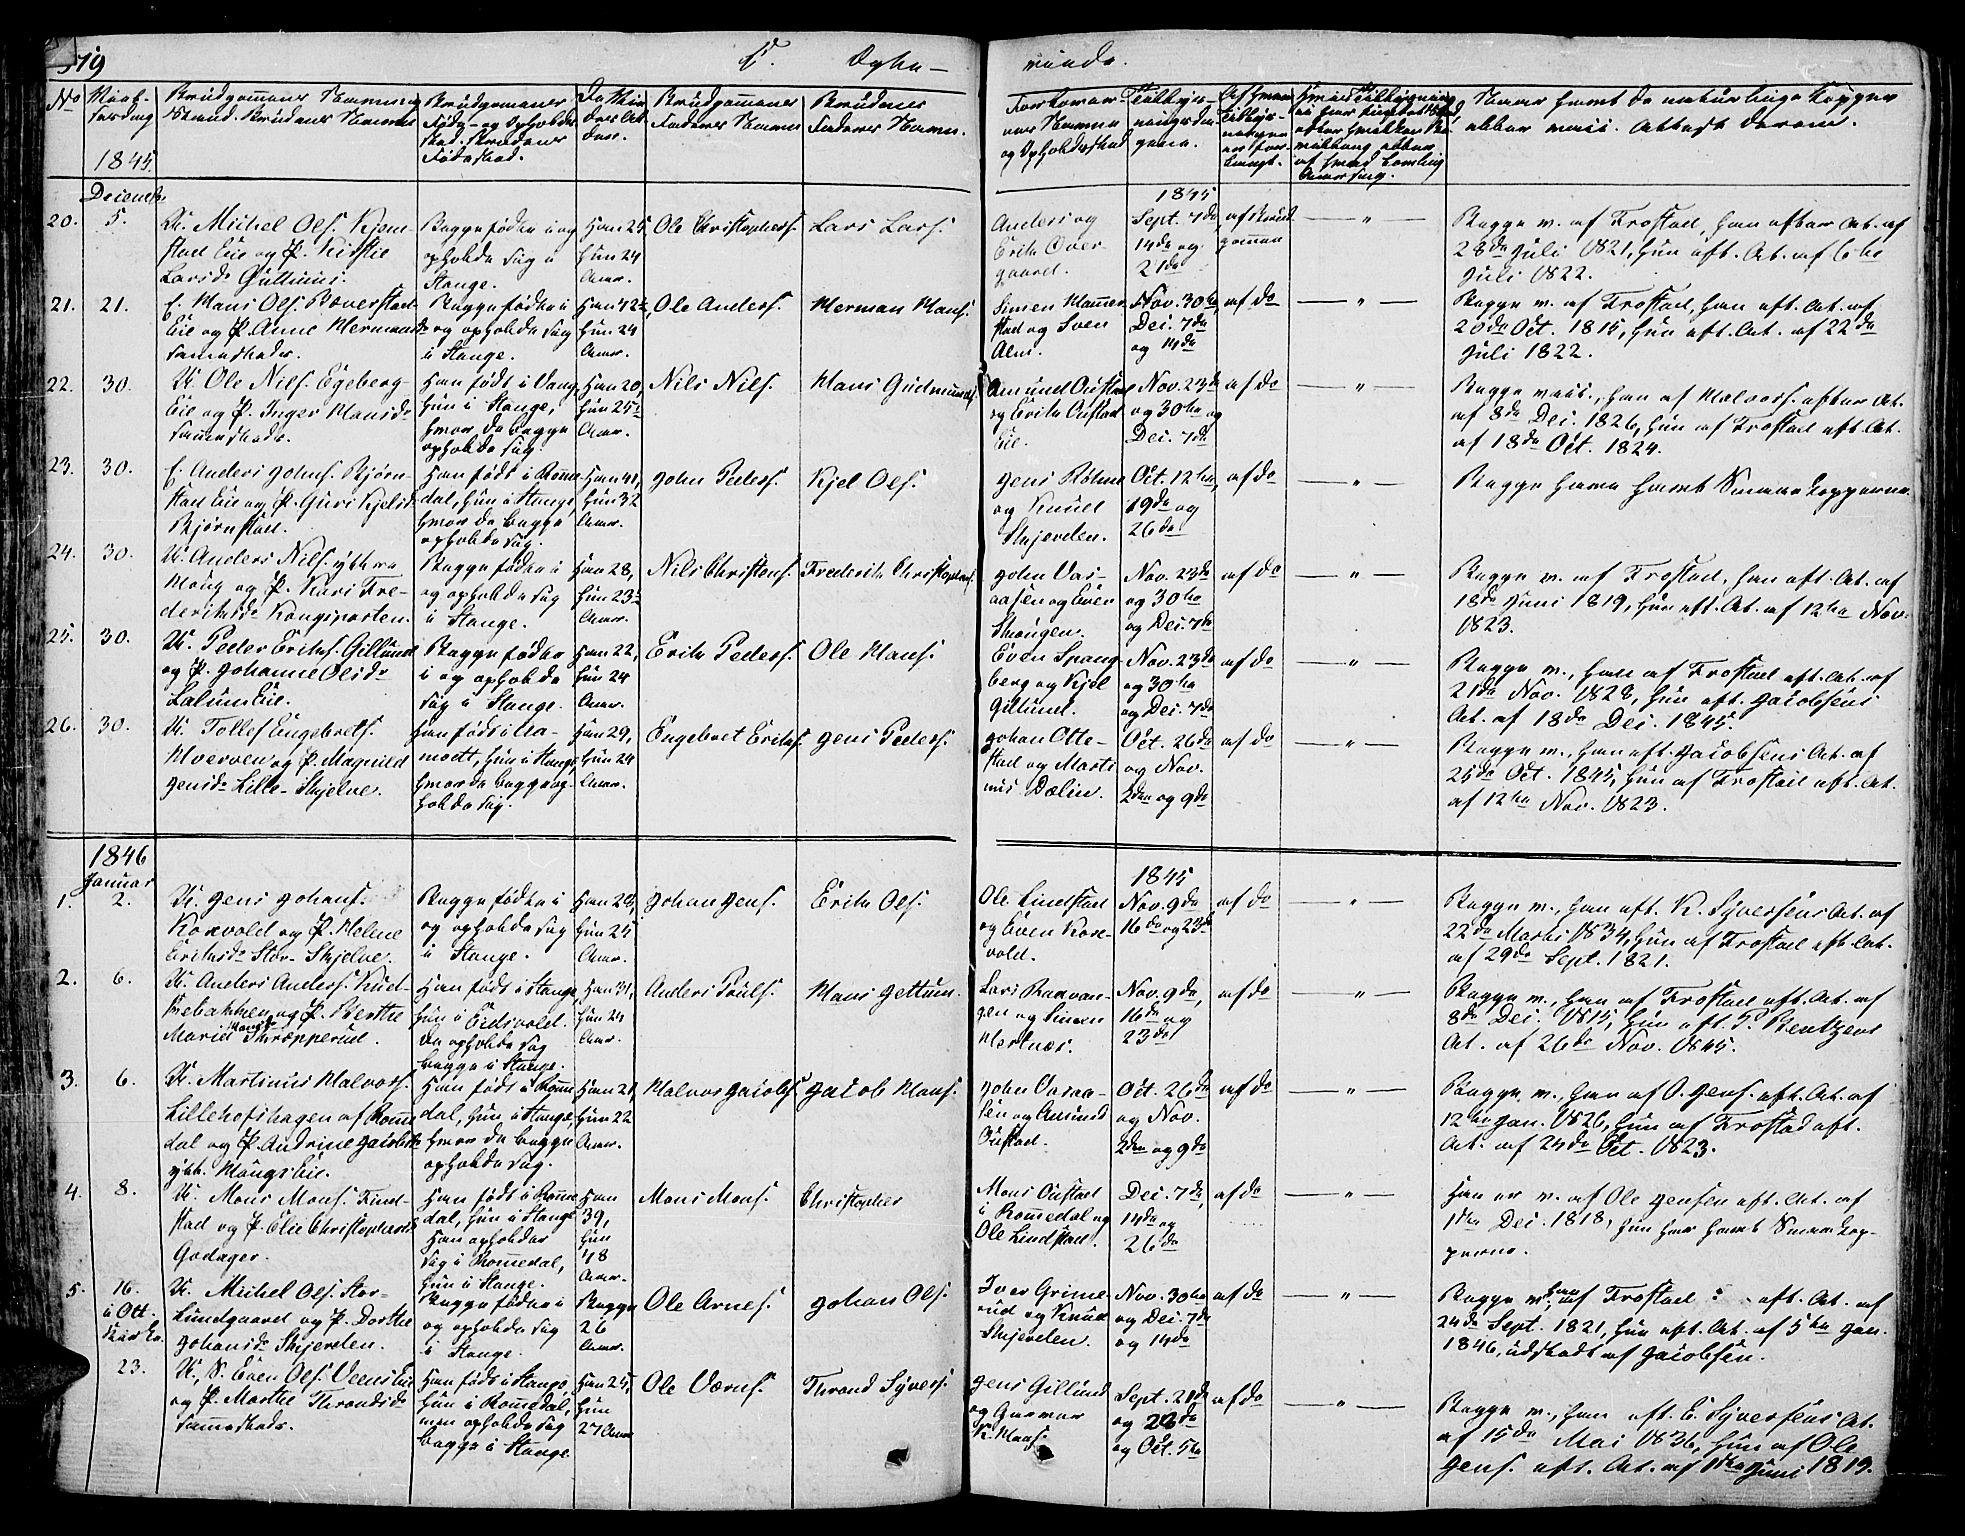 519
C. Ægte-
viede.
No
Viel-
sesdag
1845.
Brudgommens Navn og
Stand. Brudens Navn
Brudgommens
Føde- og Opholds
sted. Brudens
Fødested.
Brudgommens
Faders Navn
Brudens
Faders Navn.
Forlover-
nes Navne
og Opholdssted
Naar havt de naturlige Kopper
eller vacc. Attest derom.
Decembr.
1845
20.
5.
U. Michel Ols. Kjem-
stad Eie og P. Kirstie
Larsdr Gillund.
Begge fødte i og
opholde sig i
Stange.
Han 25
hun 24
Aar.
Ole Christophers.
Lars Lars.
Anders og
Erik Over-
gaard.
Sept. 7de
14de og
21de
af Brud
gommen
— „ —
Begge v. af Frostad, han efter At. af
28de Juli 1821, hun eft. At. af 6te
Juli 1822.
21.
21.
E. Hans Ols. Boverstad
Eie og P. Anne Hermansdr
sammesteds.
Begge fødte i
og opholde sig
i Stange.
Han 42½,
hun 24
Aar.
Ole Anders.
Herman Hans.
Simen Hammer
stad og Sven
Alm.
Nov. 30te,
Dec. 7de
og 14de
af do
— „ —
Begge v. af Frostad, han eft. At. af
20de Oct. 1815, hun eft. At. af 22de
Juli 1822.
22.
30.
U. Ole Nils. Egeberg-
Eie og P. Inger Hansdr
sammesteds.
Han født i Vang,
hun i Stange,
hvor de begge
opholde sig.
Han 20,
hun 25½
Aar.
Nils Nils.
Hans Gudmunds.
Amund Oustad
og Erik Oustad
Eie.
Nov. 23de
og 30te og
Dec. 7de
af do
— „ —
Begge vacc., han af Halvors. efter At.
af 8de Dec. 1826, hun af Frostad eft. At.
af 18de Oct. 1824.
23.
30.
E. Anders Johns. Bjørn-
stad Eie og P. Guri Kjelsdr
Bjørnstad.
Han født i Romme
dal, hun i Stange,
hvor de begge
opholde sig.
Han 41,
hun 32
Aar.
John Peders.
Kjel Ols.
Jens Røhne
og Knud
Skjerden.
Oct. 12te,
19de og
26de
af do
— „ —
Begge have havt Smaakopperne.
24.
30.
U. Anders Nils. ythre
Houg og P. Kari Fre-
deriksdr Kongsparten.
Begge fødte i
og opholde sig
i Stange.
Han 28,
hun 23½
Aar.
Nils Christens.
Frederik Christophers.
John Vas-
aasen og Even
Skougen.
Nov. 23de
og 30te
og Dec. 7de
af do
— „ —
Begge v. af Frostad, han eft. At. af
18de Juni 1819, hun eft. At. af 12te Nov.
1823.
25.
30.
U. Peder Eriks. Gillund
og P. Johanne Olsdr
Lalum Eie.
Begge fødte
i og opholde
sig i Stange.
Han 22,
hun 24
Aar.
Erik Peders.
Ole Hans.
Even Spang-
berg og Kjel
Gillund.
Nov. 23de
og 30te
og Dec. 7de
af do
— „ —
Begge v., han af Frostad eft. At. af
21de Nov. 1828, hun eft. Jacobsens
At. af 18de Dec. 1845.
26.
30.
U. Tollef Engebrets.
Hverven og P. Magnild
Jensdr Lille-Skjelve.
Han føds i Aa-
modt, hun i Stange,
hvor de begge op-
holde sig.
Han 29,
hun 24
Aar.
Engebret Eriks.
Jens Peders.
Johan Otte-
stad og Marti
nus Dælin.
Oct. 26de
og Nov.
2den og 9de
af do
— „ —
Begge v., han eft. Jacobsens At. af
25de Oct. 1845, hun af Frostad eft. At.
af 12te Nov. 1823.
1846
Januar
1845
1.
2.
U. Jens Johans.
Korvold og P. Helene
Eriksdr Stor-Skjelve.
Begge fødte i
og opholde sig
i Stange.
Han 28,
hun 25
Aar.
Johan Jens.
Erik Ols.
Ole Lindstad
og Even Kors-
vold.
Nov. 9de
16de og 23de
af do
— „ —
Begge v., han eft. K. Syversens At. af
22de Marts 1834, hun af Frostad eft. At.
af 29de Sept. 1821.
2.
6.
U. Anders Anders. Rud-
sebakken og P. Berthe
Marie Hansdr Skrepperud.
Han født i Stange,
hun i Eidsvold.
De opholde sig
begge i Stange.
Han 31,
hun 24
Aar.
Anders Pouls.
Hans Jettum.
Lars Ravan-
gen og Simen
Hertnæs.
Nov. 9de,
16de og
23de
af do
— „ —
Begge v., han af Frostad eft. At. af
8de Dec. 1815, hun eft. P. Bentzens
At. af 26de Nov. 1845.
3.
6.
U. Martinus Halvors.
Lillehofshagen af Romme
dal og P. Andrine Jacobsdr
yth. Hougs Eie.
Han født i Romme
dal, hun i Stange,
hvor de begge
opholde sig.
Han 21,
hun 22
Aar.
Halvor Jacobs.
Jacob Hans.
John Vasaa-
sen og Amund
Oustad.
Oct. 26de
og Nov.
2den og 9de
af do
— „ —
Begge v., han af O. Jens. eft. At. af
12te Jan. 1826, hun af Frostad eft.
At. af 24de Oct. 1823.
4.
8.
U. Mons Mons. Find-
stad og P. Elie Christophersdr
Godager.
Han født i Romme
dal, hun i Stange
Han opholder
sig i Rommedal,
hun i Stange.
Han
39,
hun
48
Aar.
Mons Mons.
Christopher
Mons Oustad
i Rommedal og
Ole Lindstad.
Dec. 7de,
14de og
26de
af do
— „ —
Han er v. af Ole Jensen eft. At. af
1ste Dec. 1818, hun har havt Smaakop-
perne.
5.
16.
i Ott.
U. Michel Ols. Stor-
Lundgaard og P. Dorthe
Johansdr Skjerden.
Begge fødte i
og opholde sig
i Stange.
Begge
26
Aar.
Ole Arnes.
Johan Ols.
Iver Grime-
rud og Knud
Skjerden.
Nov. 30te
og Dec. 7de
og 14de
af do
— „ —
Begge v., han af Frostad eft. At. af
24de Sept. 1821, hun eft. At. af 5te Jan.
1846, udstedt af Jacobsen.
23.
U. S. Even Ols. Veens Eie
og P. Marthe Throndsdr
sammesteds.
Han født i Stange,
hun i Romedal,
men opholde sig
begge i Stange
Han 25,
hun
27 Aar
Ole Værns.
Thrond Syvers.
Jens Gillund
og Gunnar
K. Hans.
Sept. 21de
og 28de
og Oct. 5te
af do
— „ —
Begge v., han eft. E. Syversens At.
af 15de Mai 1836, hun af Ole
Jens. eft. At. af 1ste Juni 1819.